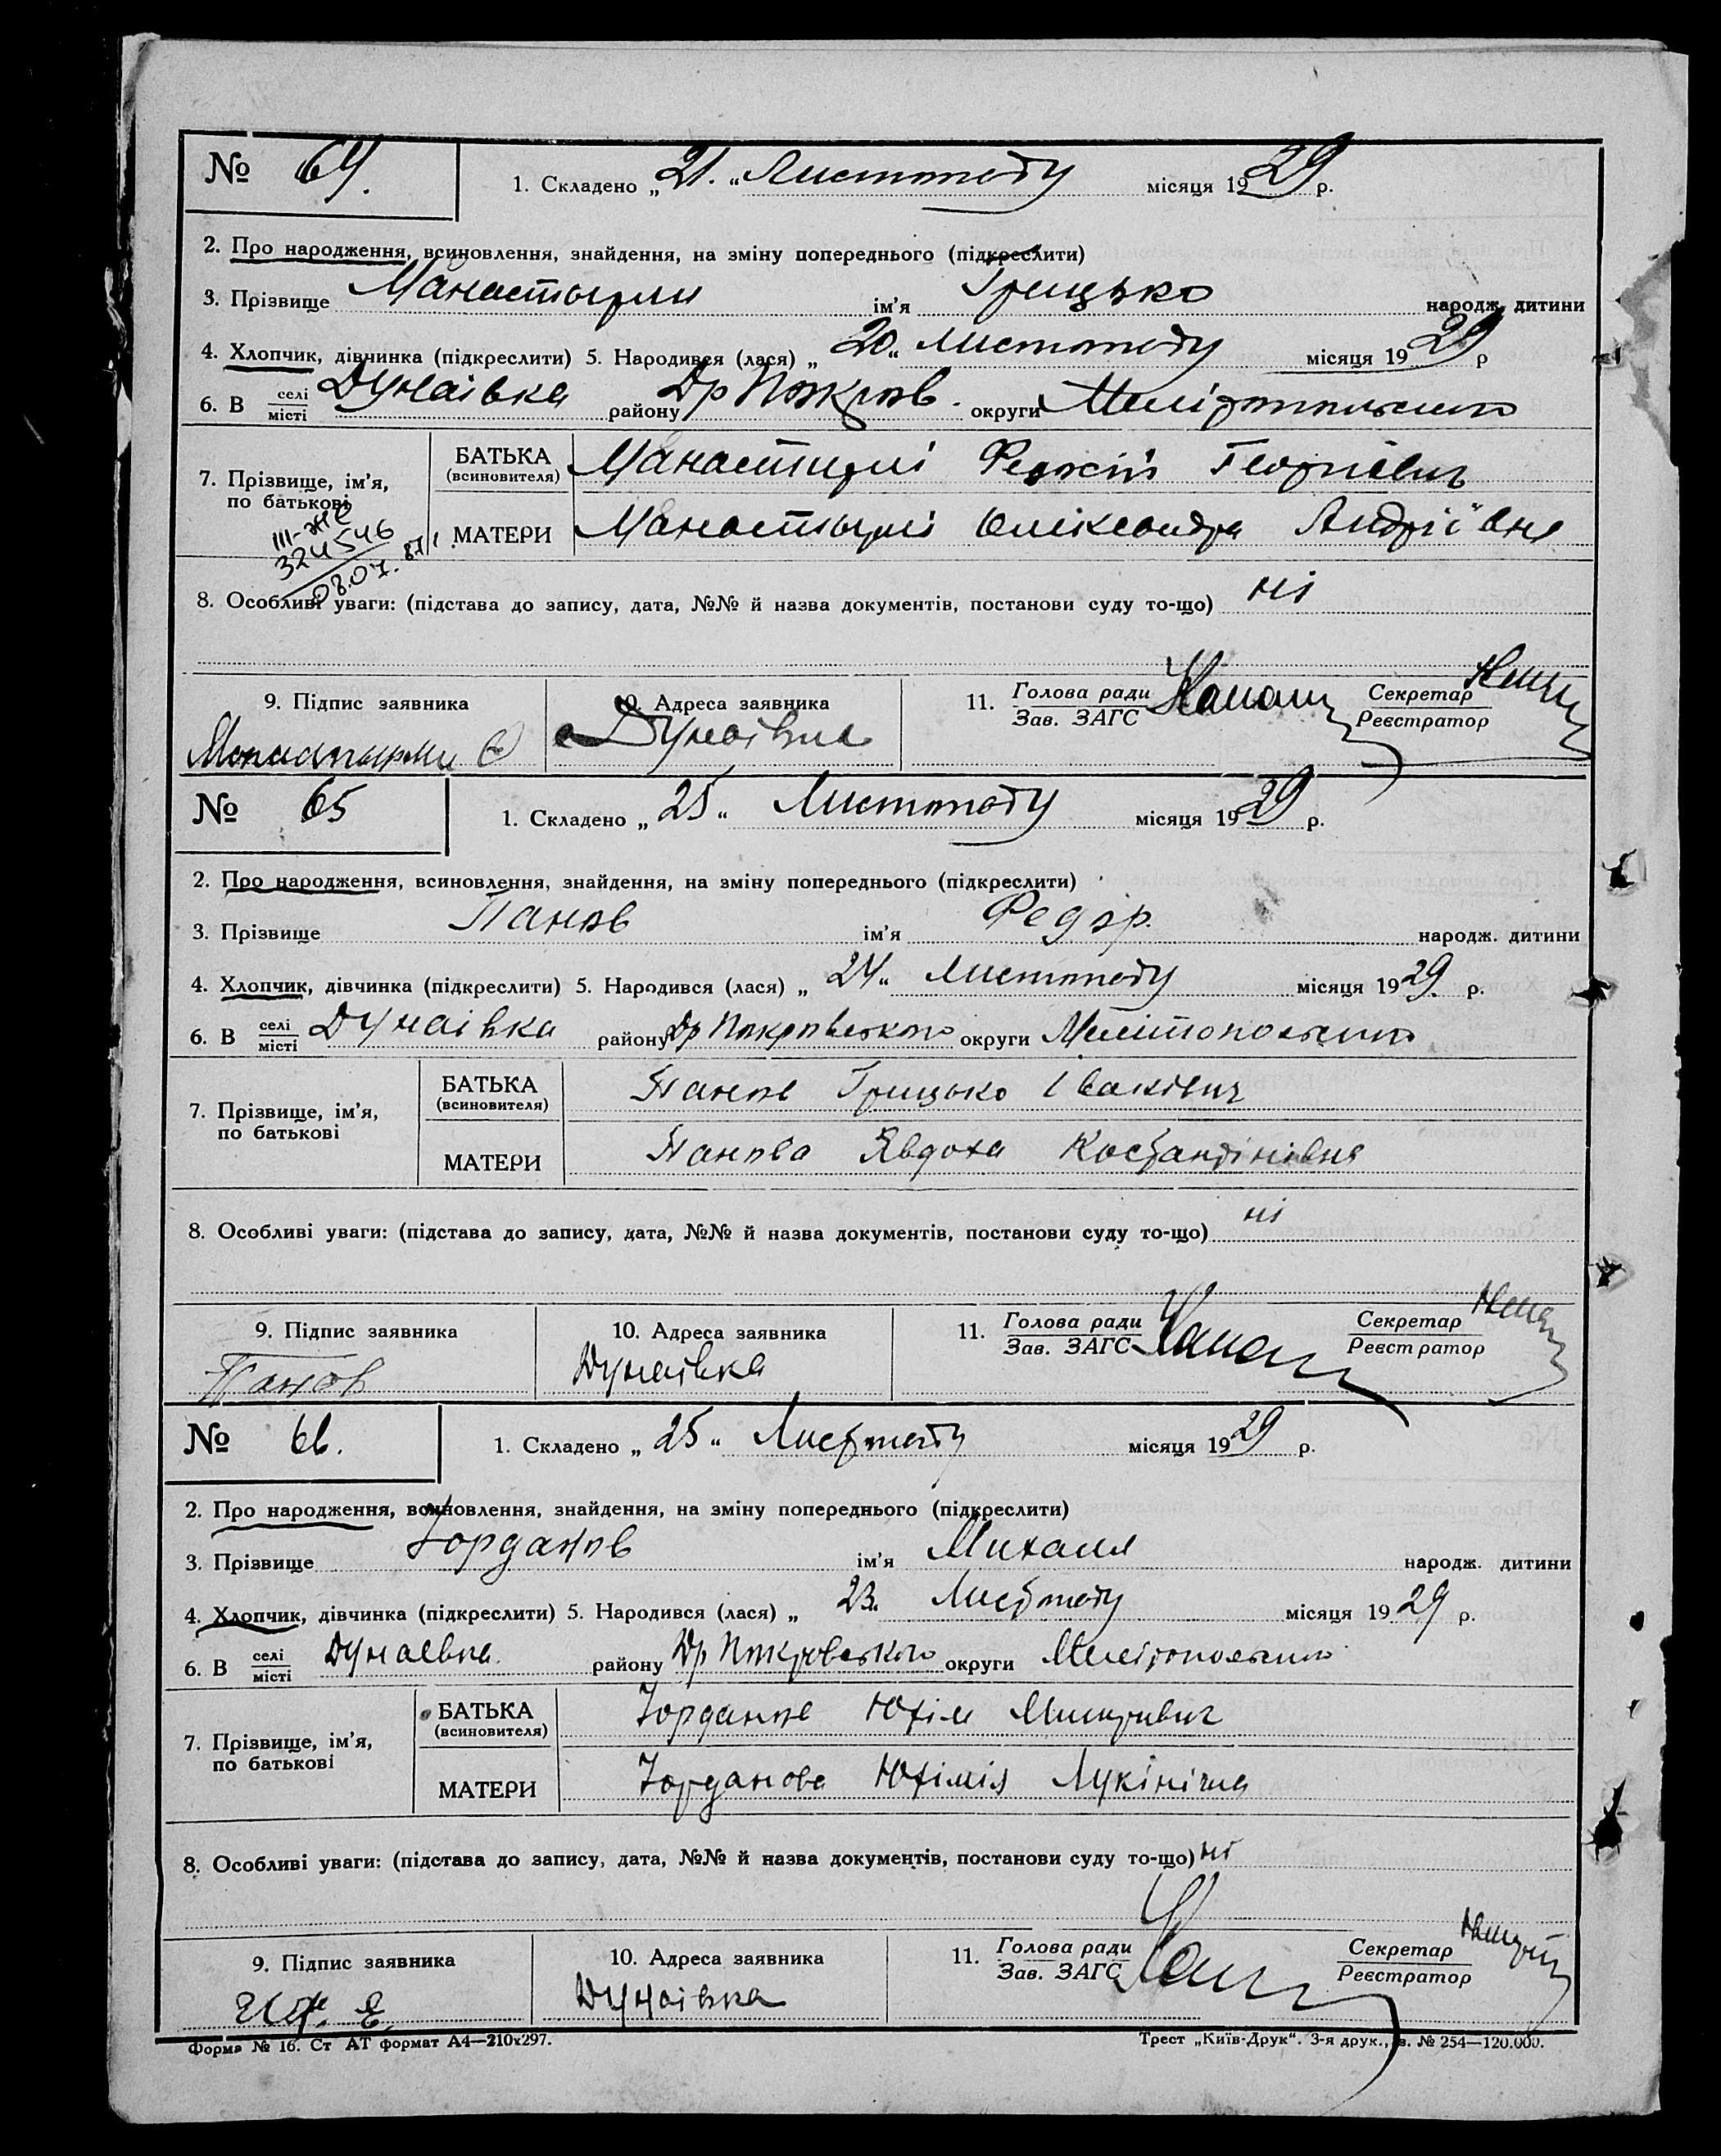 № 64. 1. Складено „21.“ Листопаду місяця 1929 р.
2. Про народження, всиновлення, знайдення, на зміну попереднього (підкреслити)
3. Прізвище Манастырли ім'я Грицько народж. дитини
4. Хлопчик, дівчинка (підкреслити) 5. Народився (лася) „20“ листопаду місяця 1929 р
6. В селі/місті Дунаівка району Др Покров. округи Мелітопольської
7. Прізвище, ім'я, по батькові БАТЬКА (всиновителя) Манастирлі Георгієвич
III-ЖС
324546
08.07.87
МАТЕРИ Манастырлі Олександра Андріївна
8. Особливі уваги: (підстава до запису, дата, №№ й назва документів, постанови суду то-що) ні
9. Підпис заявника 10. Адреса заявника 11. Голова ради/Зав. ЗАГС Секретар/Реєстратор
Манастырли Дунаівка
№ 65 1. Складено „25“ Листопаду місяця 1929 р.
2. Про народження, всиновлення, знайдення, на зміну попереднього (підкреслити)
3. Прізвище Панов ім'я Федор. народж. дитини
4. Хлопчик, дівчинка (підкреслити) 5. Народився (лася) „24“ листопаду місяця 1929. р.
6. В селі/місті Дунаівка району Др Покровського округи Мелітопольської
7. Прізвище, ім'я, по батькові БАТЬКА (всиновителя) Панов Грицько Івановіч
МАТЕРИ Панова Явдоха Костантінівна
8. Особливі уваги: (підстава до запису, дата, №№ й назва документів, постанови суду то-що) ні
9. Підпис заявника 10. Адреса заявника 11. Голова ради/Зав. ЗАГС Секретар/Реєстратор
Панов Дунаівка
№ 66. 1. Складено „25“ Листопаду місяця 1929 р.
2. Про народження, всиновлення, знайдення, на зміну попереднього (підкреслити)
3. Прізвище Йорданов ім'я Михаил народж. дитини
4. Хлопчик, дівчинка (підкреслити) 5. Народився (лася) „23“ Листопаду місяця 1929 р.
6. В селі/місті Дунаевка району Др Покровського округи Мелітопольської
7. Прізвище, ім'я, по батькові БАТЬКА (всиновителя) Йорданов Юхім
МАТЕРИ Йорданова Юхімія Лукінічна
8. Особливі уваги: (підстава до запису, дата, №№ й назва документів, постанови суду то-що) ні
9. Підпис заявника 10. Адреса заявника 11. Голова ради/Зав. ЗАГС Секретар/Реєстратор
Дунаівка
Форма № 16. Ст АТ формат А4—210х297. Трест „Київ-Друк“. 3-я друк., з. № 254—120.000.